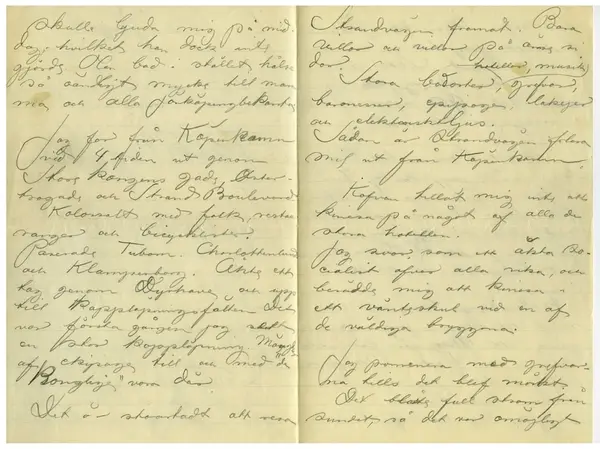 skulle bjuda mig på mid-
dag, hvilket han dock inte
gjorde. Olen bad i stället hälsa
så oändligt mycket till mam-
ma och alla Jönköpingbekanta.
Jag for från Köpenhamn
vid 4 tiden ut genom
Store Kongens gade, Öster-
brogade och Strand Boulevard
Kolossalt med folk, restau-
ranger och bicyclister.
Passerade Tuborg. Charlottenlund
och Klampenborg. Åkte ett
tag genom Dyrehave och upp
till Kapplöpningsfälten. Det
var första gången jag sett
en stor kapplöpning. Mängd
af ekipager till och med "de
Konglige" vora där.
Det är storartadt att resa
Strandvägen framåt. Bara
villor och villor på ömse si-
dor. hoteller, musik,
Stora badorter, grefvar,
baroner, ekipager, lakejer
och elektriskt ljus.
Sådan är Strandvägen
mil ut från Köpenhamn.
inte att
kinesa på något af alla de
stora hotellen.
Jag svor som en äkta so-
cialist öfver alla rika, och
beredde mig att kinesa i
ett väntskjul vid en af
de väldiga bryggorna.
Jag promenera med grefvar-
na tills det blef mörkt.
Det blåste full storm från
sundet, så det var omöjligt